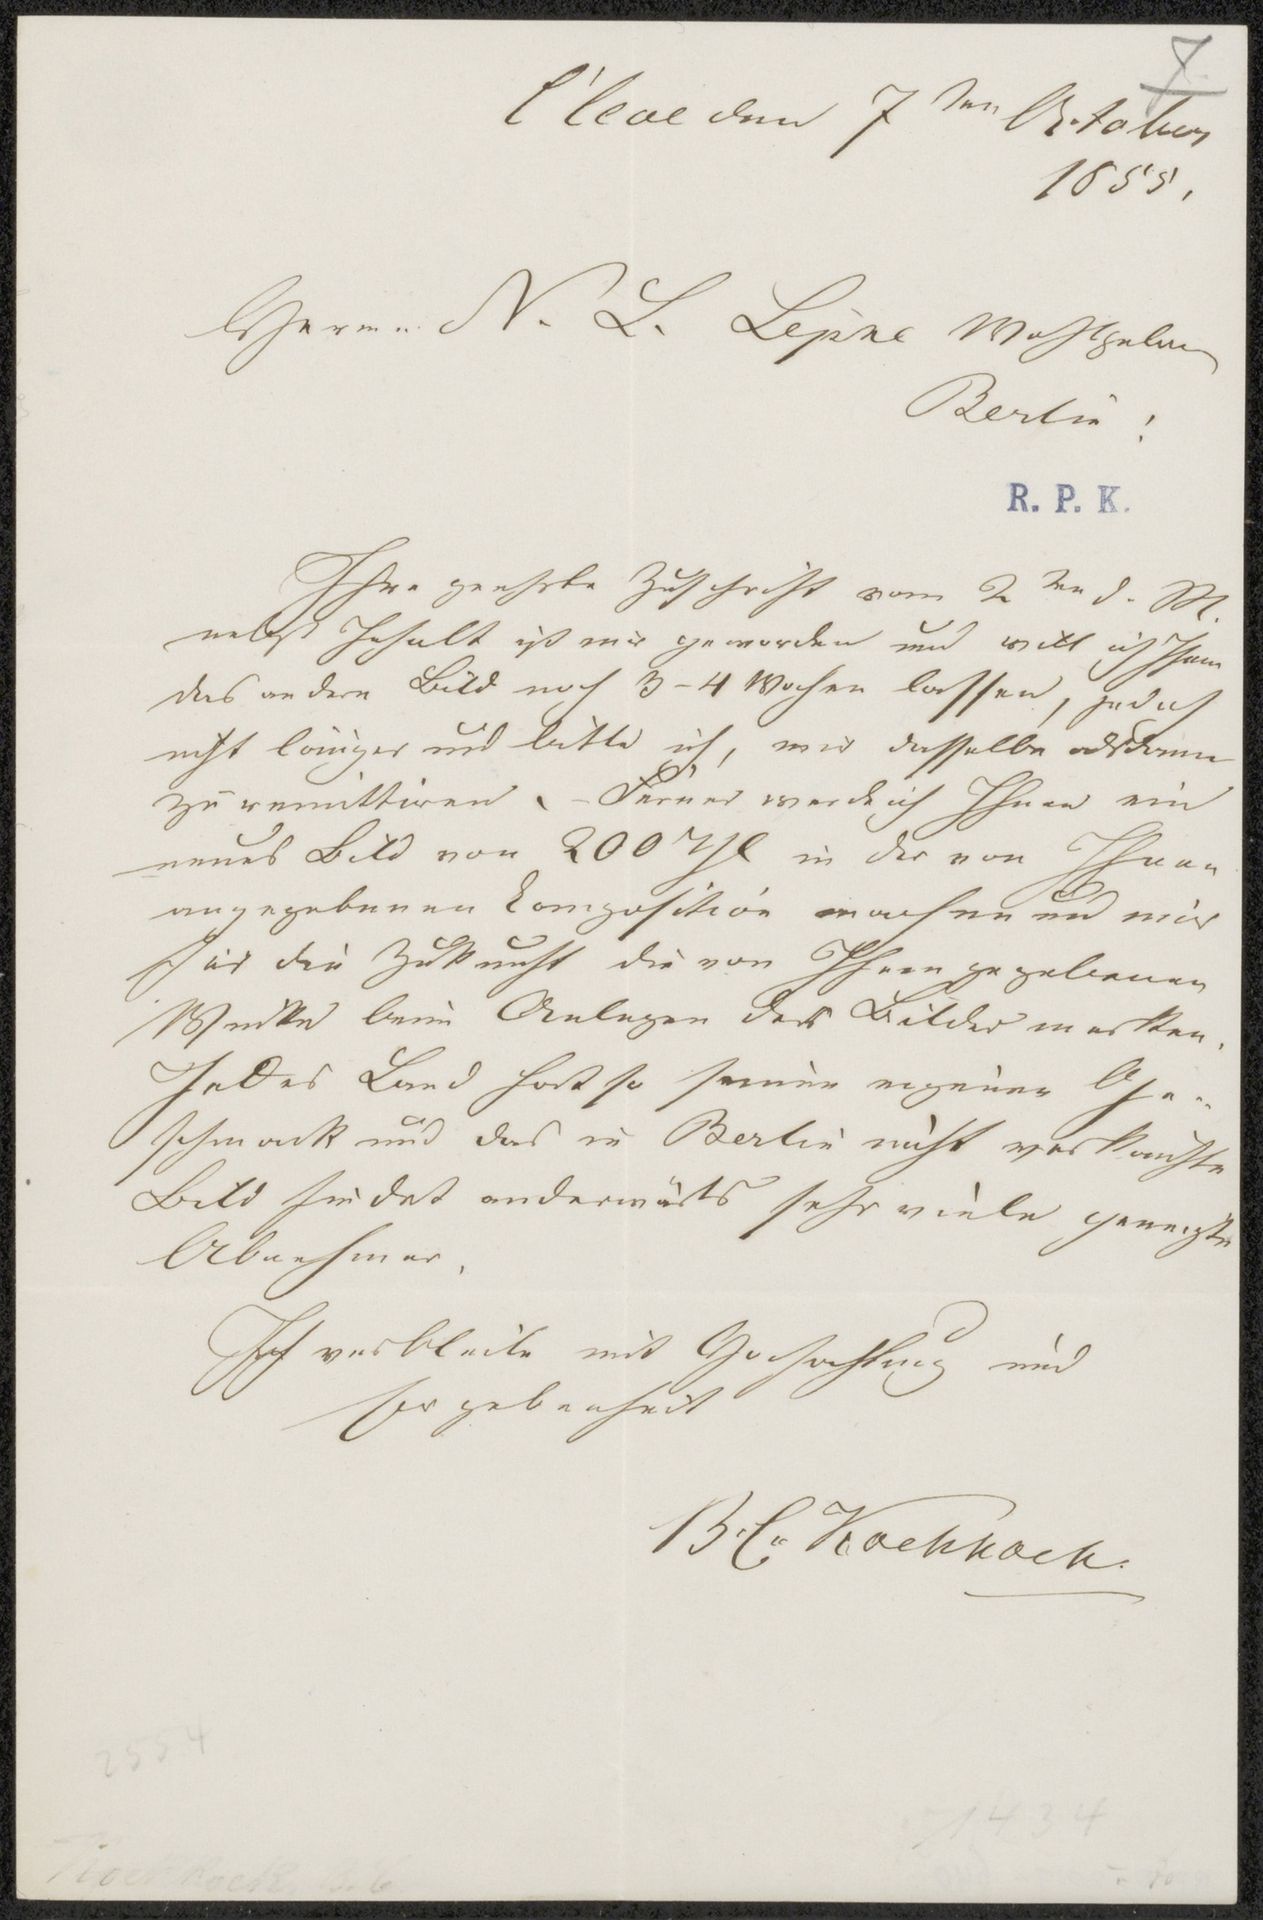 7
Cleve den 7ten October
1855.
Herrn N. L. Lepke Wohlgeboren
Berlin!
R. P. K.
Ihre geehrte Zuschrift vom 2ten d. M.
nebst Inhalt ist mir geworden und will ich Ihnen
das andere Bild noch 3-4 Wochen lassen, jedoch
nicht länger und bitte ich, mir dasselbe alsdann
zu remittiren. - Ferner werde ich Ihnen ein
neues Bild von 200 in der von Ihnen
angegebenen Composition machen und mir
für die Zukunft die von Ihnen gegebenen
Winke beim Anlegen der Bilder merken.
Jedes Land hat so seinen eigenen Ge-
schmack und das in Berlin nicht verkaufte
Bild findet anderwärts sehr viele geneigte
Abnehmer.
Ich verbleibe mit Hochachtung und
Ergebenheit
B. C. Koekkoek.
2554
1434
Koekkoek, B.C.